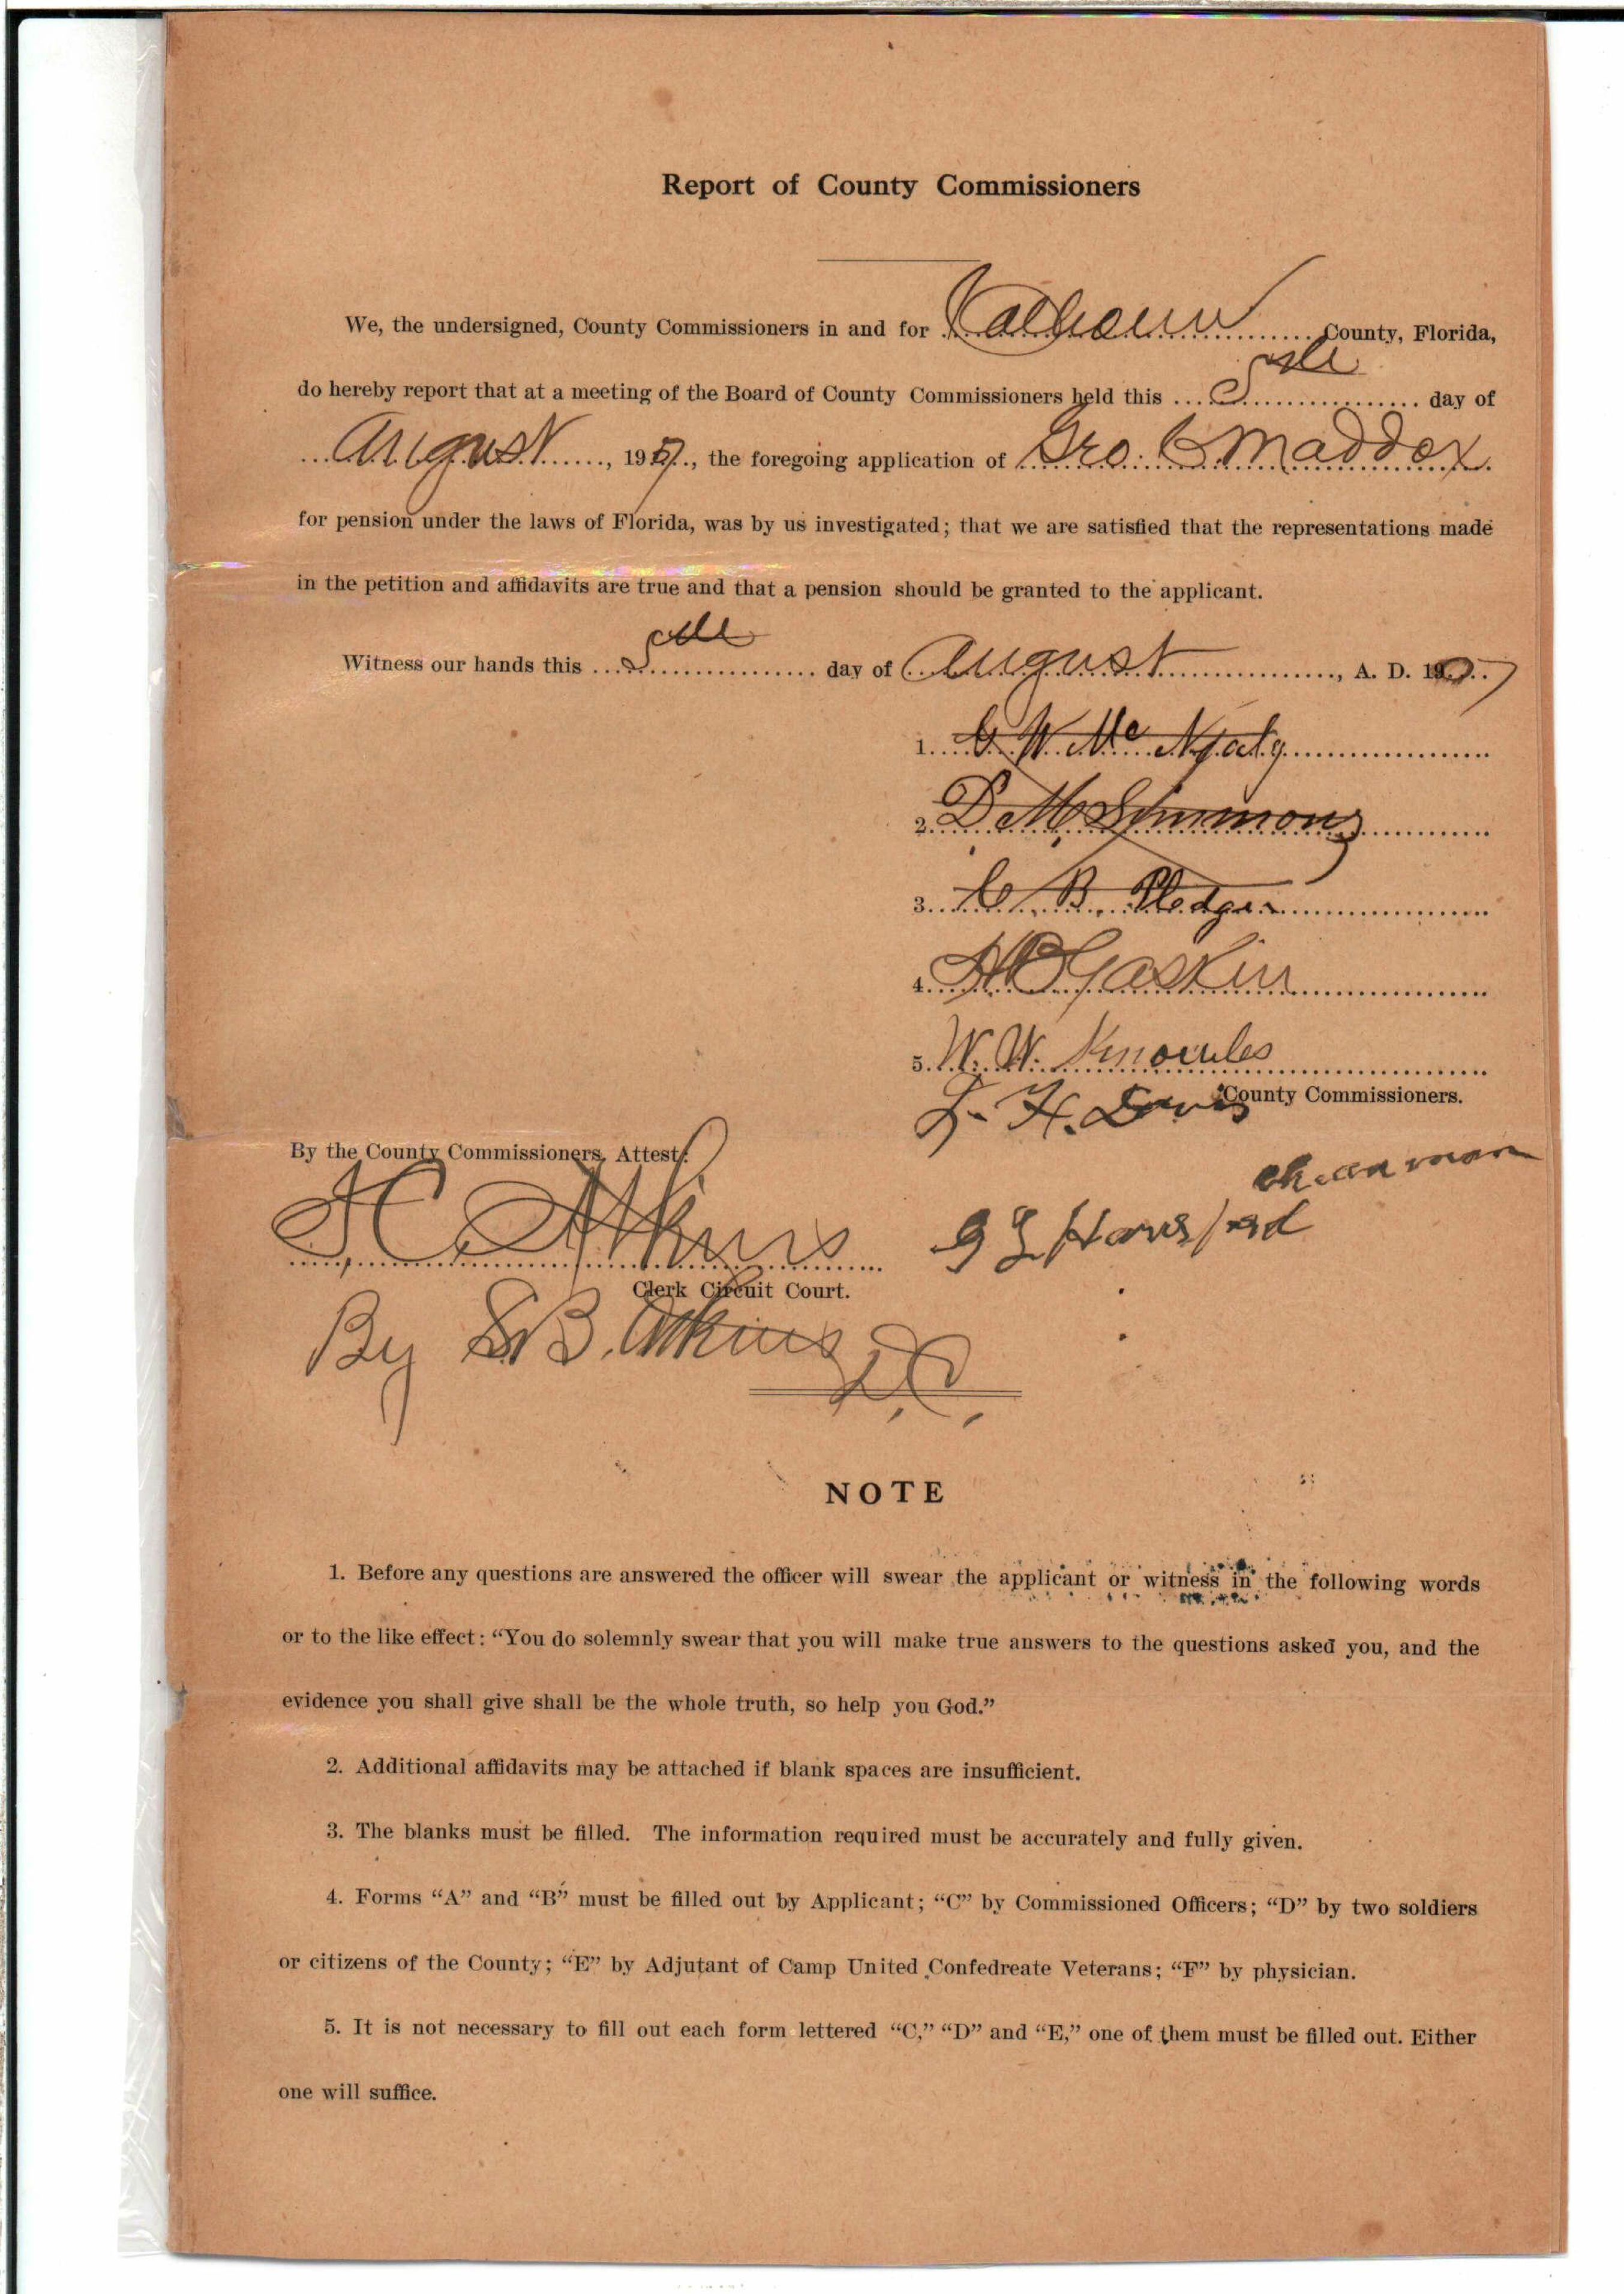 Report of County Commissioners
We, the undersigned, County Commissioners in and for Calhoun County, Florida,
do hereby report that at a meeting of the Board of County Commissioners held this 5th day of
August, 1907, the foregoing application of Geo. C Maddox
for pension under the laws of Florida, was by us investigated; that we are satisfied that the representations made
in the petition and affidavits are true and that a pension should be granted to the applicant.
Witness our hands this 5th day of August, A. D. 1907
1. W. Mc
2. D M Simmons
3. C. B. Pledger
4. Gaskin
5. W. W. Knowles
County Commissioners.
L. H. Davis
By the County Commissioners, Attest:
chairman
H C Atkins
Hansford
Clerk Circuit Court.
By S. B. Atkins
D. C.
NOTE
1. Before any questions are answered the officer will swear the applicant or witness in the following words
or to the like effect: “You do solemnly swear that you will make true answers to the questions asked you, and the
evidence you shall give shall be the whole truth, so help you God.”
2. Additional affidavits may be attached if blank spaces are insufficient.
3. The blanks must be filled. The information required must be accurately and fully given.
4. Forms “A” and “B” must be filled out by Applicant; “C” by Commissioned Officers; “D” by two soldiers
or citizens of the County; “E” by Adjutant of Camp United Confedreate Veterans; “F” by physician.
5. It is not necessary to fill out each form lettered “C,” “D” and “E,” one of them must be filled out. Either
one will suffice.